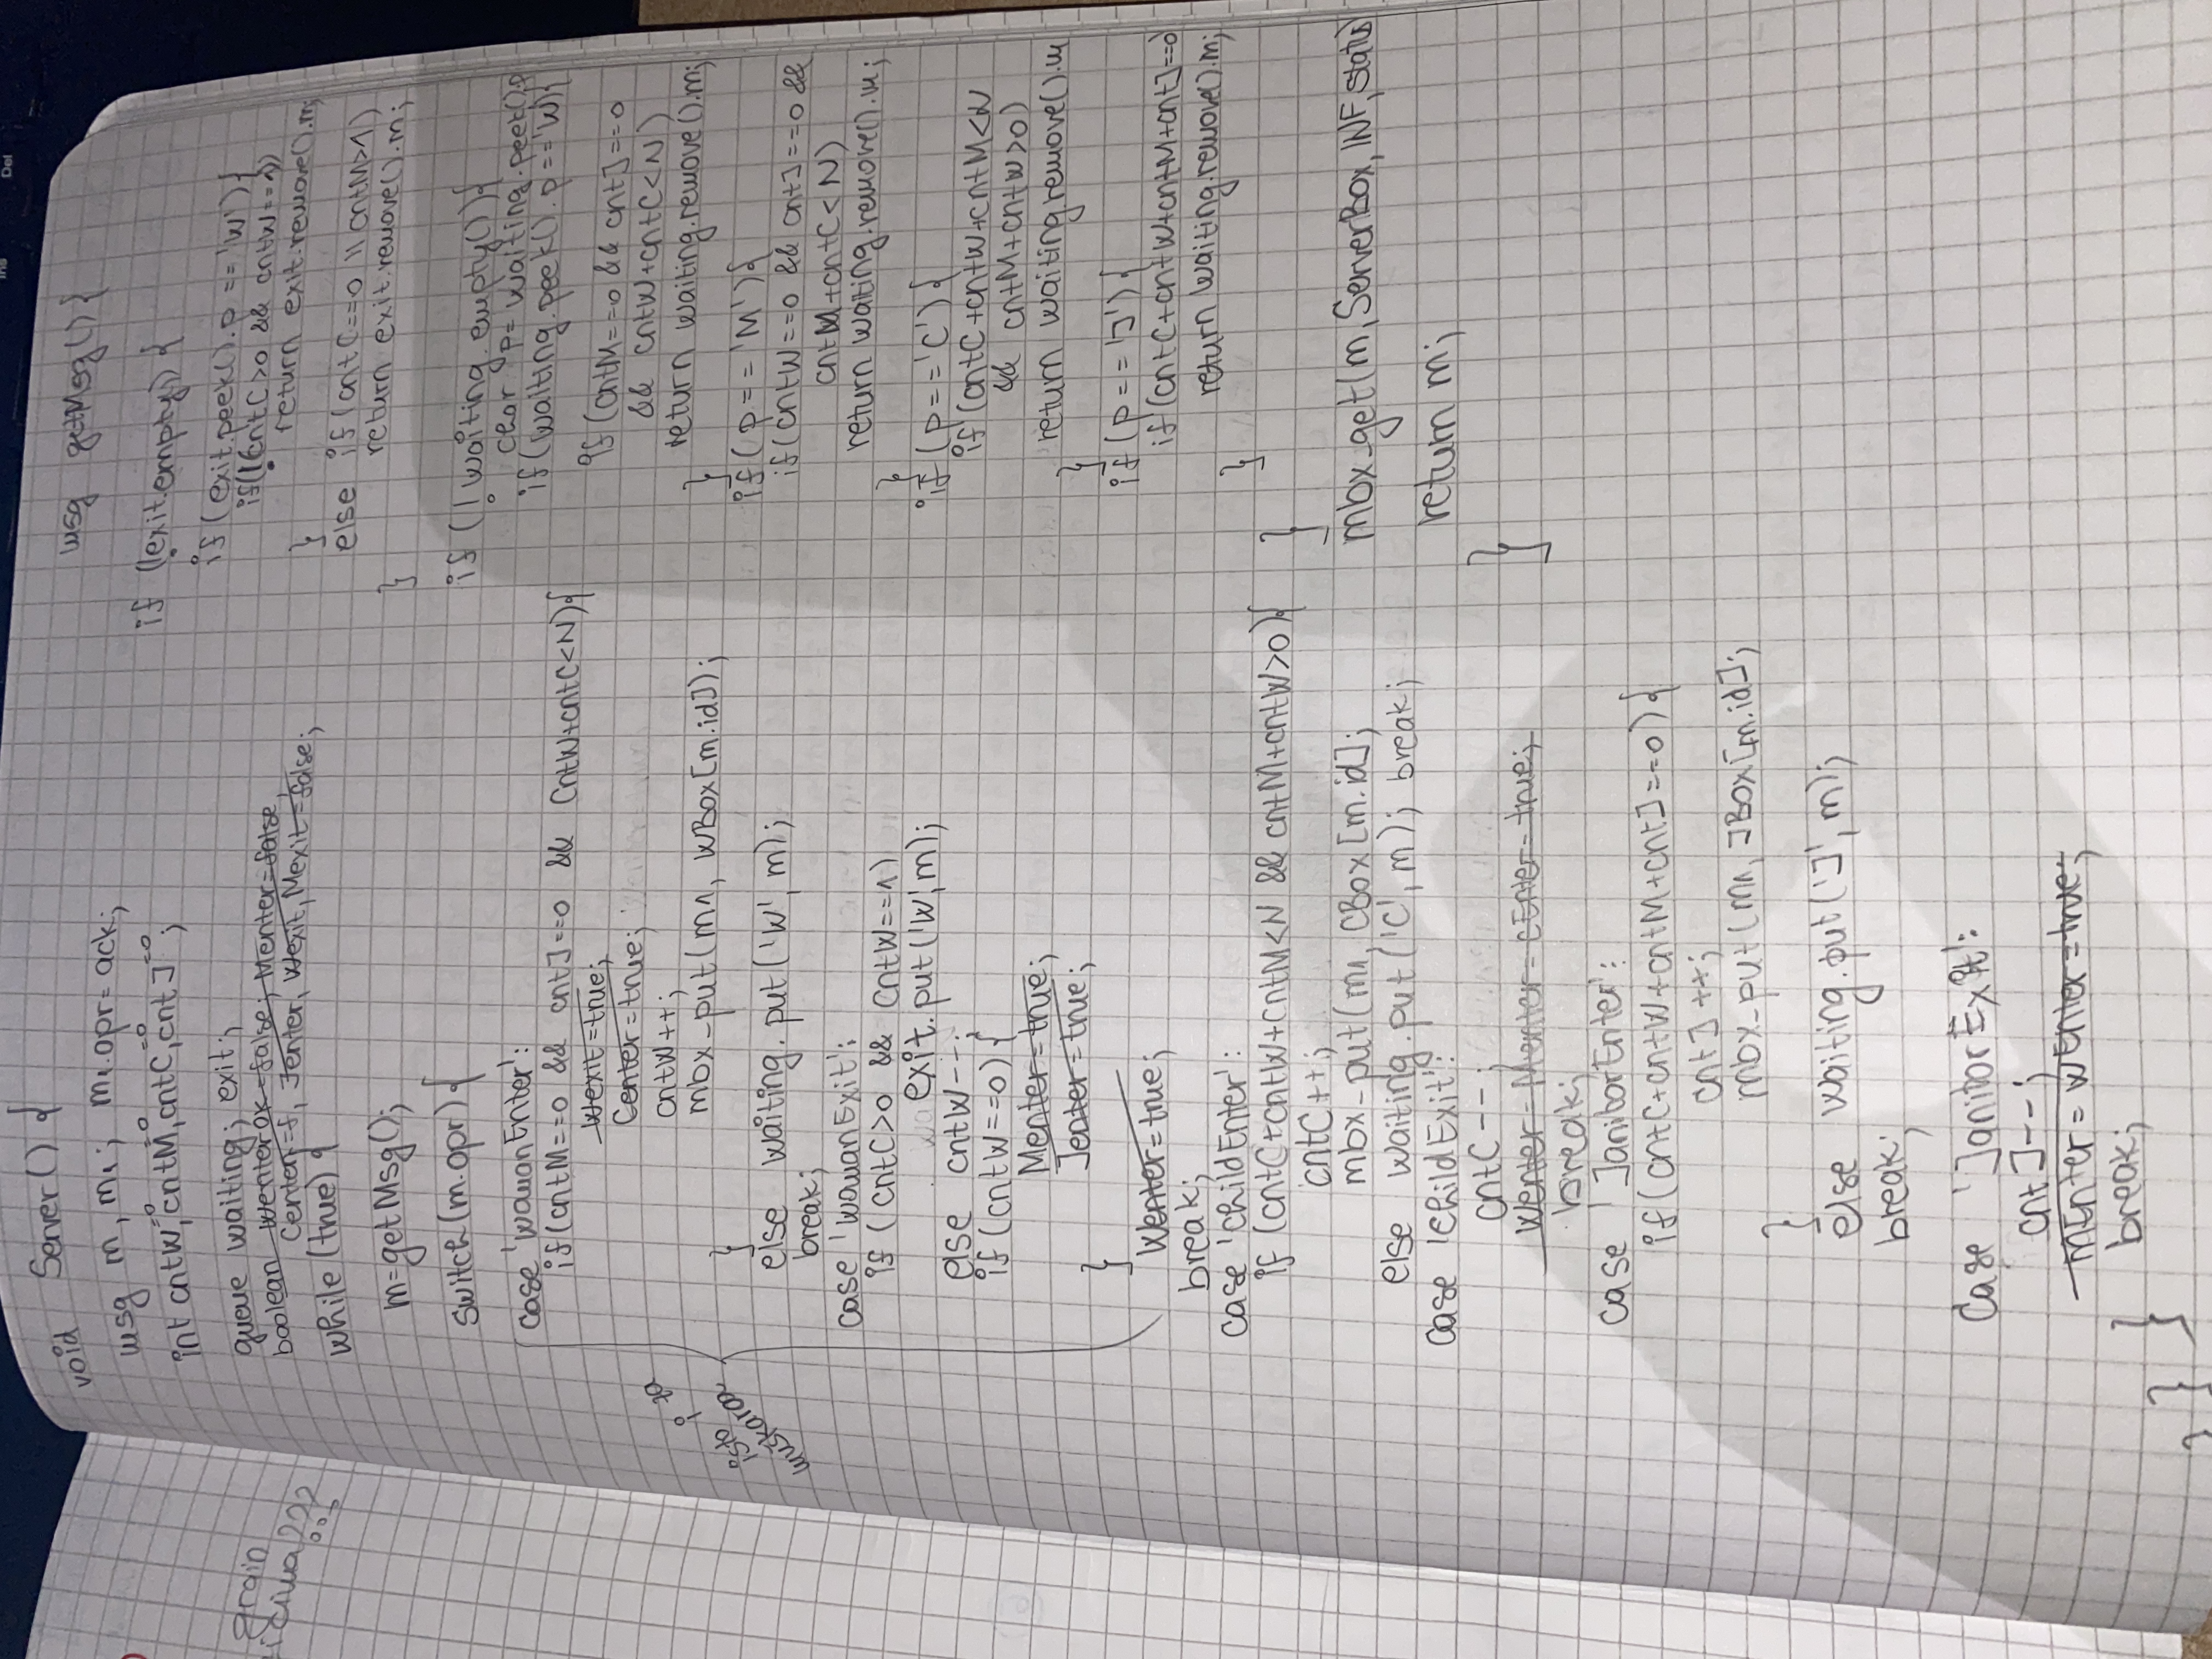 void Server() {
msg m, m1; m1.opr= ack;
int cntW=0, cntM=0, cntC=0, cntJ=0;
queue waiting; exit;
boolean WenterOk=false; Menter=false,
Center=f, Jenter, Wexit, Mexit=false;
while (true) {
m=getMsg();
switch(m.opr) {
case 'womanEnter':
if(cntM==0 && cntJ==0 && CntW+cntC<N){
Wexit=true;
Center=true;
cntW++;
mbx_put(m1, WBox[m.id]);
}
else waiting.put('W', m);
break;
case 'womanExit':
if (cntC>0 && CntW==1)
exit.put('W', m);
else cntW--;
if (cntW==0) {
Menter=true;
Jenter=true;
}
Wenter=true;
break;
case 'childEnter':
if (cntC+cntW+CntM<N && cntM+cntW>0){
cntC++;
mbx_put(m1, CBox[m.id];
else waiting.put('C', m); break;
Case 'ChildExit':
cntC--;
Wenter=Menter=cEnter=true;
break;
case 'JanitorEnter':
if(cntC+cntW+cntM+cntJ==0){
cntJ++;
mbx_put(m1, JBox[m.id];
}
else waiting.put('J', m);
break;
Case 'JanitorExit':
cntJ--;
mEnter=wEnter=true;
break;
}
}
}
isto i za
muškarca
grain
???
msg getMsg() {
if (!exit.empty) {
if (exit.peek().p == 'W') {
if(!(cntC>0 && cntW==1))
return exit.remove().m;
}
else if(cntC==0 || cntM>1)
return exit.remove().m;
}
if (!waiting.empty()){
char p= waiting.peek().p
if(waiting.peek().p=='W'){
if (cntM==0 && cntJ==0
&& cntW+cntC<N)
return waiting.remove().m;
}
if(p=='M'){
if(cntW==0 && cntJ==0 &&
cntM+cntC<N)
return waiting.remove().m;
}
if(p=='C'){
if(cntC+cntW+cntM<N
&& cntM+cntW>0)
return waiting.remove().m
}
if(p=='J'){
if(cntC+cntW+cntM+cntJ==0)
return waiting.remove().m;
}
}
mbx_get(m, ServerBox, INF, status)
return m;
}
Ins
Del